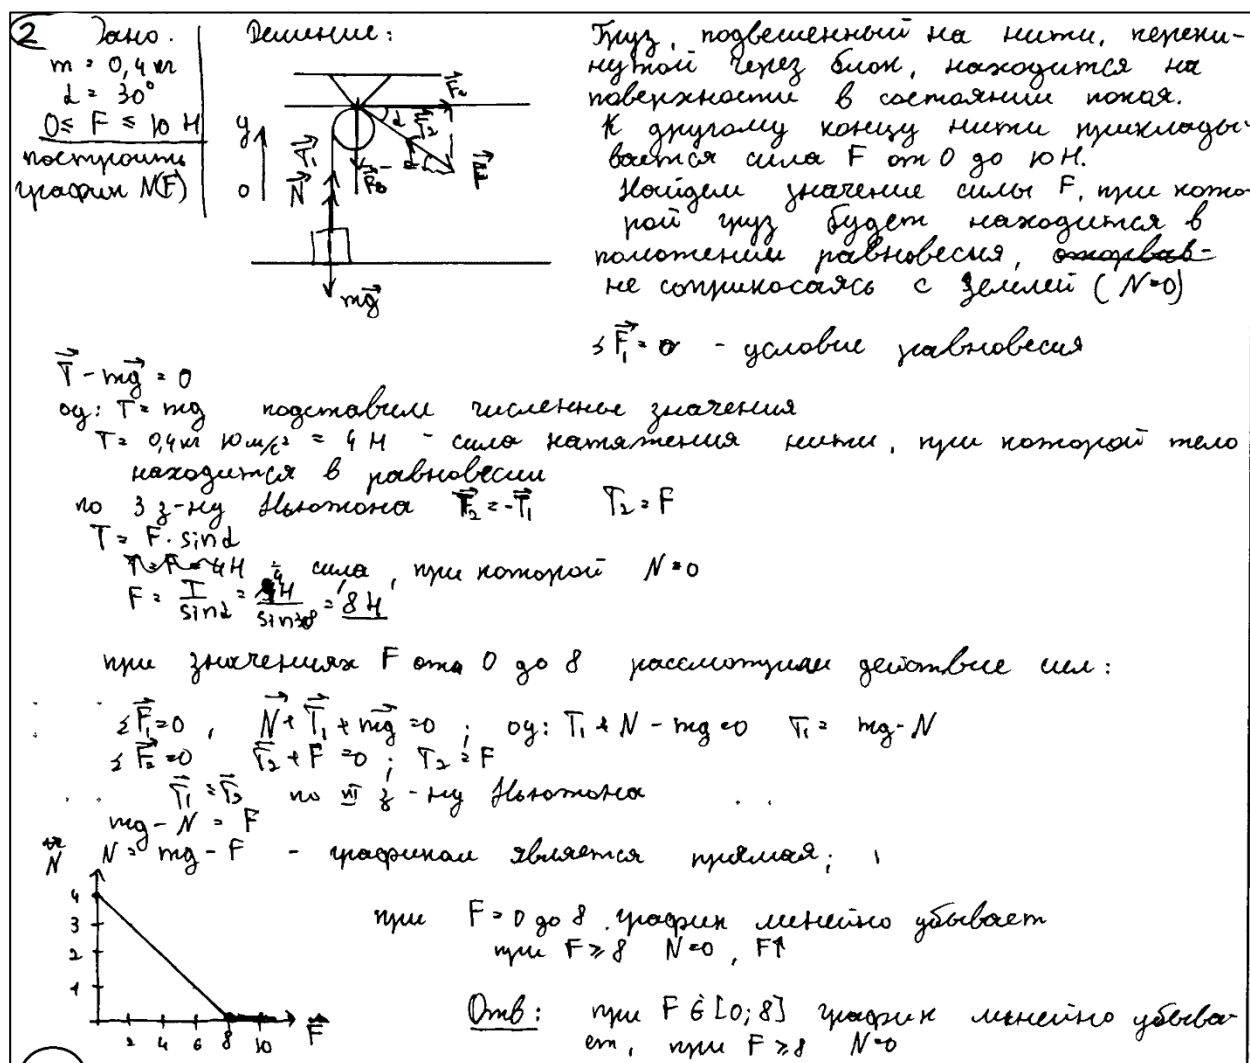 2 Дано:
m = 0,4 кг
α = 30°
0 ≤ F ≤ 10 Н
построить
график N(F)
Решение:
y
0
N
T
mg
Груз, подвешенный на нити, переки-
нутой через блок, находится на
поверхности в состоянии покоя.
К другому концу нити приклады-
вается сила F от 0 до 10 Н.
Найдем значение силы F, при кото-
рой груз будет находится в
положении равновесия,
не соприкасаясь с Землей (N=0)
Σ F₁ = 0 - условие равновесия
T - mg = 0
оу: T = mg подставим численные значения
T = 0,4 кг 10 м/с² = 4 Н - сила натяжения нити, при которой тело
находится в равновесии
по 3 з-ну Ньютона T₂ = -T₁ T₂ = F
T = F · sinα
T = F = 4Н - сила, при которой N=0
F = T/sinα = 4Н/sin30 = 8Н
при значениях F от 0 до 8 рассмотрим действие сил:
Σ F₁ = 0, N + T₁ + mg = 0; оу: T₁ + N - mg = 0 T₁ = mg - N
Σ F₂ = 0 T₂ + F = 0; T₂ = F
T₁ = T₂ по III з-ну Ньютона
mg - N = F
N = mg - F - графиком является прямая;
N
4
3
2
1
2 4 6 8 10 F
при F = 0 до 8 график линейно убывает
при F ≥ 8 N=0, F↑
Отв: при F ∈ [0; 8] график линейно убыва-
ет, при F ≥ 8 N=0